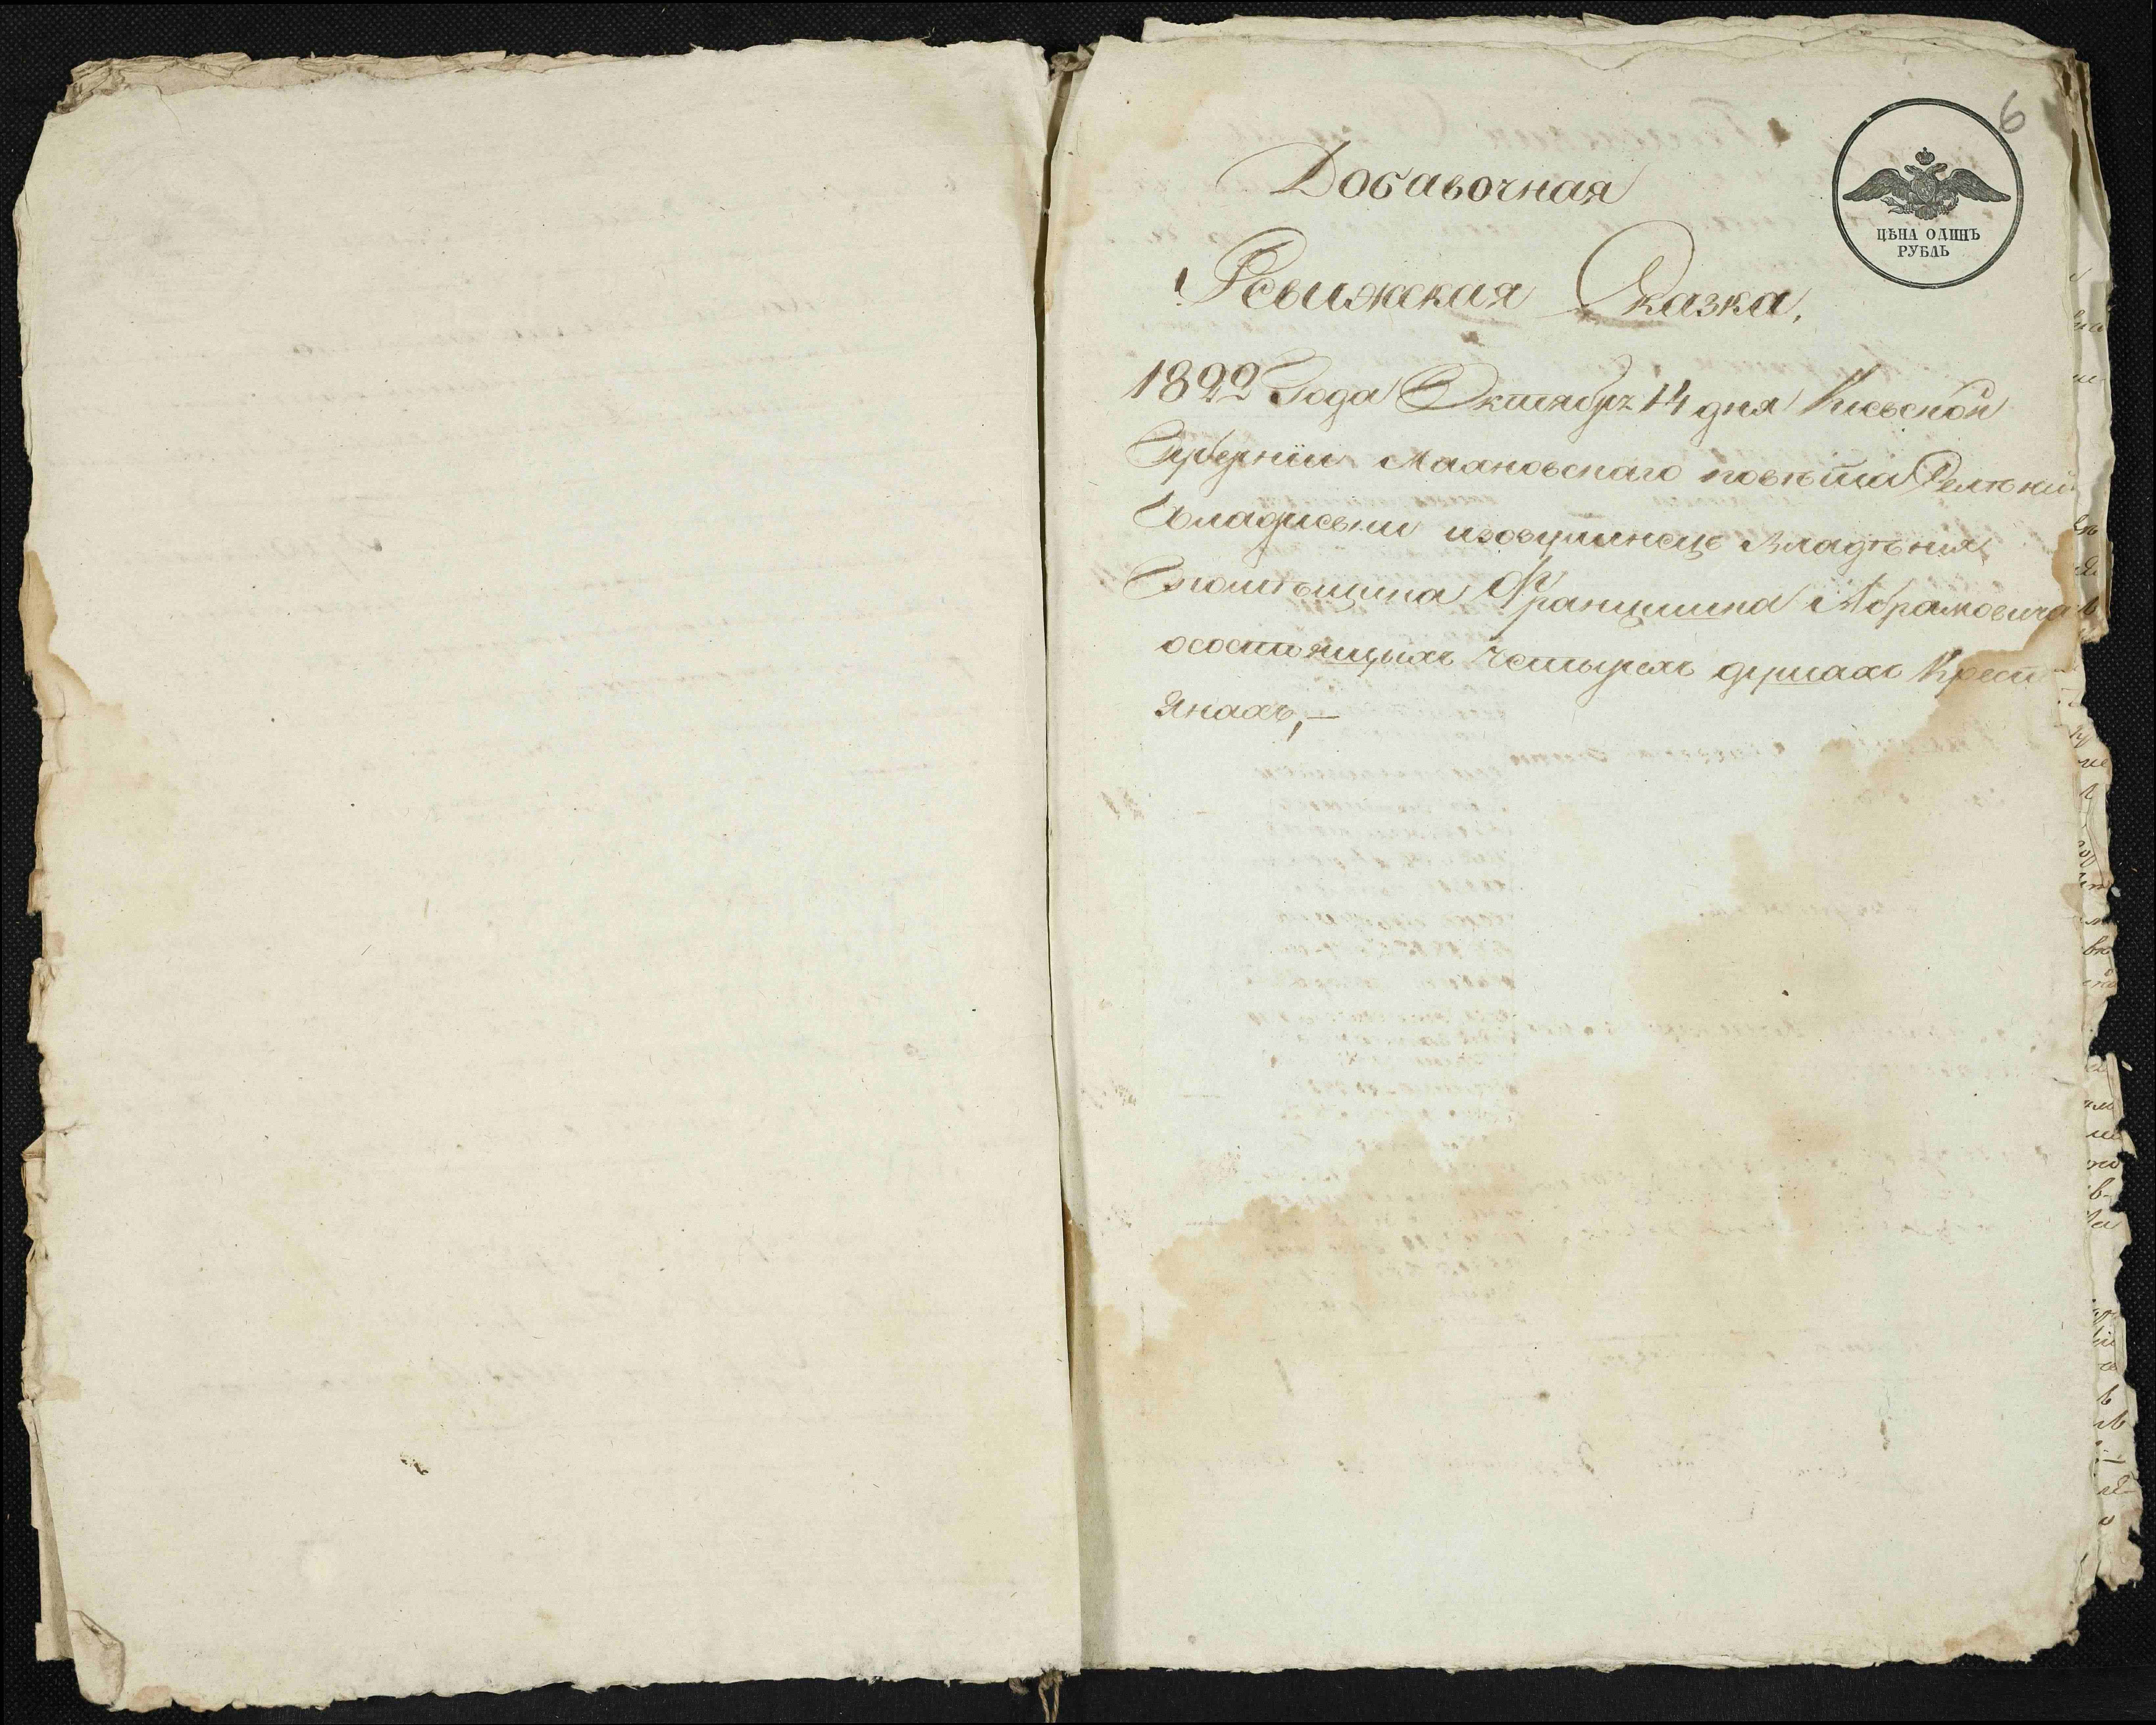 6
ЦѢНА ОДИНЪ
РУБЛЬ
Добавочная
Ревижская Сказка,
1822 Года Октября 14 дня Кіевской
Губерніи Махновскаго повѣта
владѣнія
помѣщика Францишка Абрамовича
осостаящихъ четырехъ душахъ Крест
янахъ,—